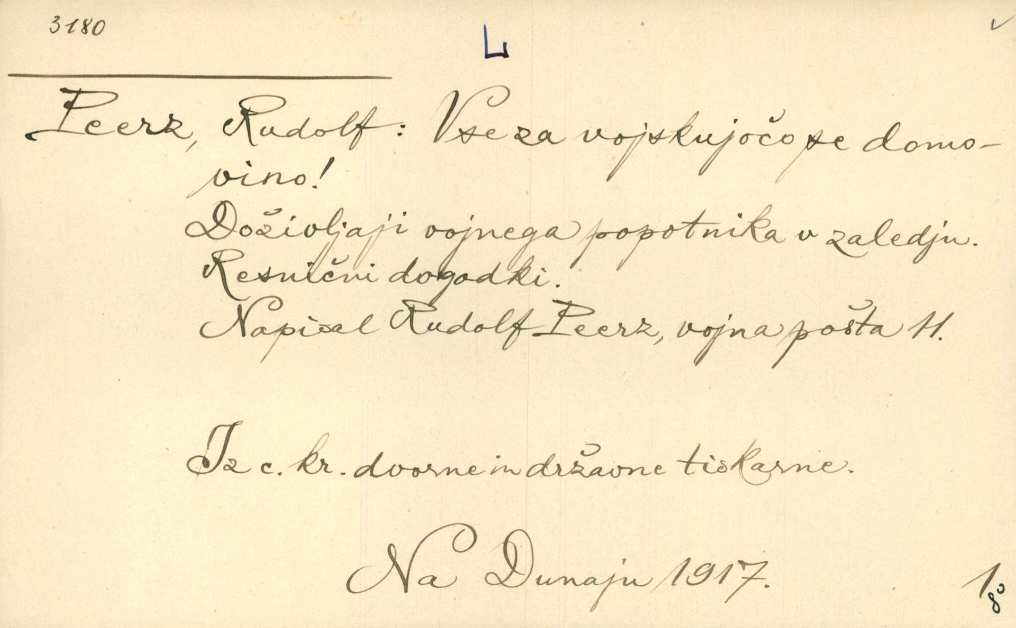 3180
L
Peerz, Rudolf: Vse za vojskujočo se domo-
vino!
Doživljaji vojnega popotnika v zaledju.
Resnični dogodki.
Napisal Rudolf Peerz, vojna pošta 11.
Iz c. kr. dvorne in državne tiskarne.
Na Dunaju 1917.
1
8°